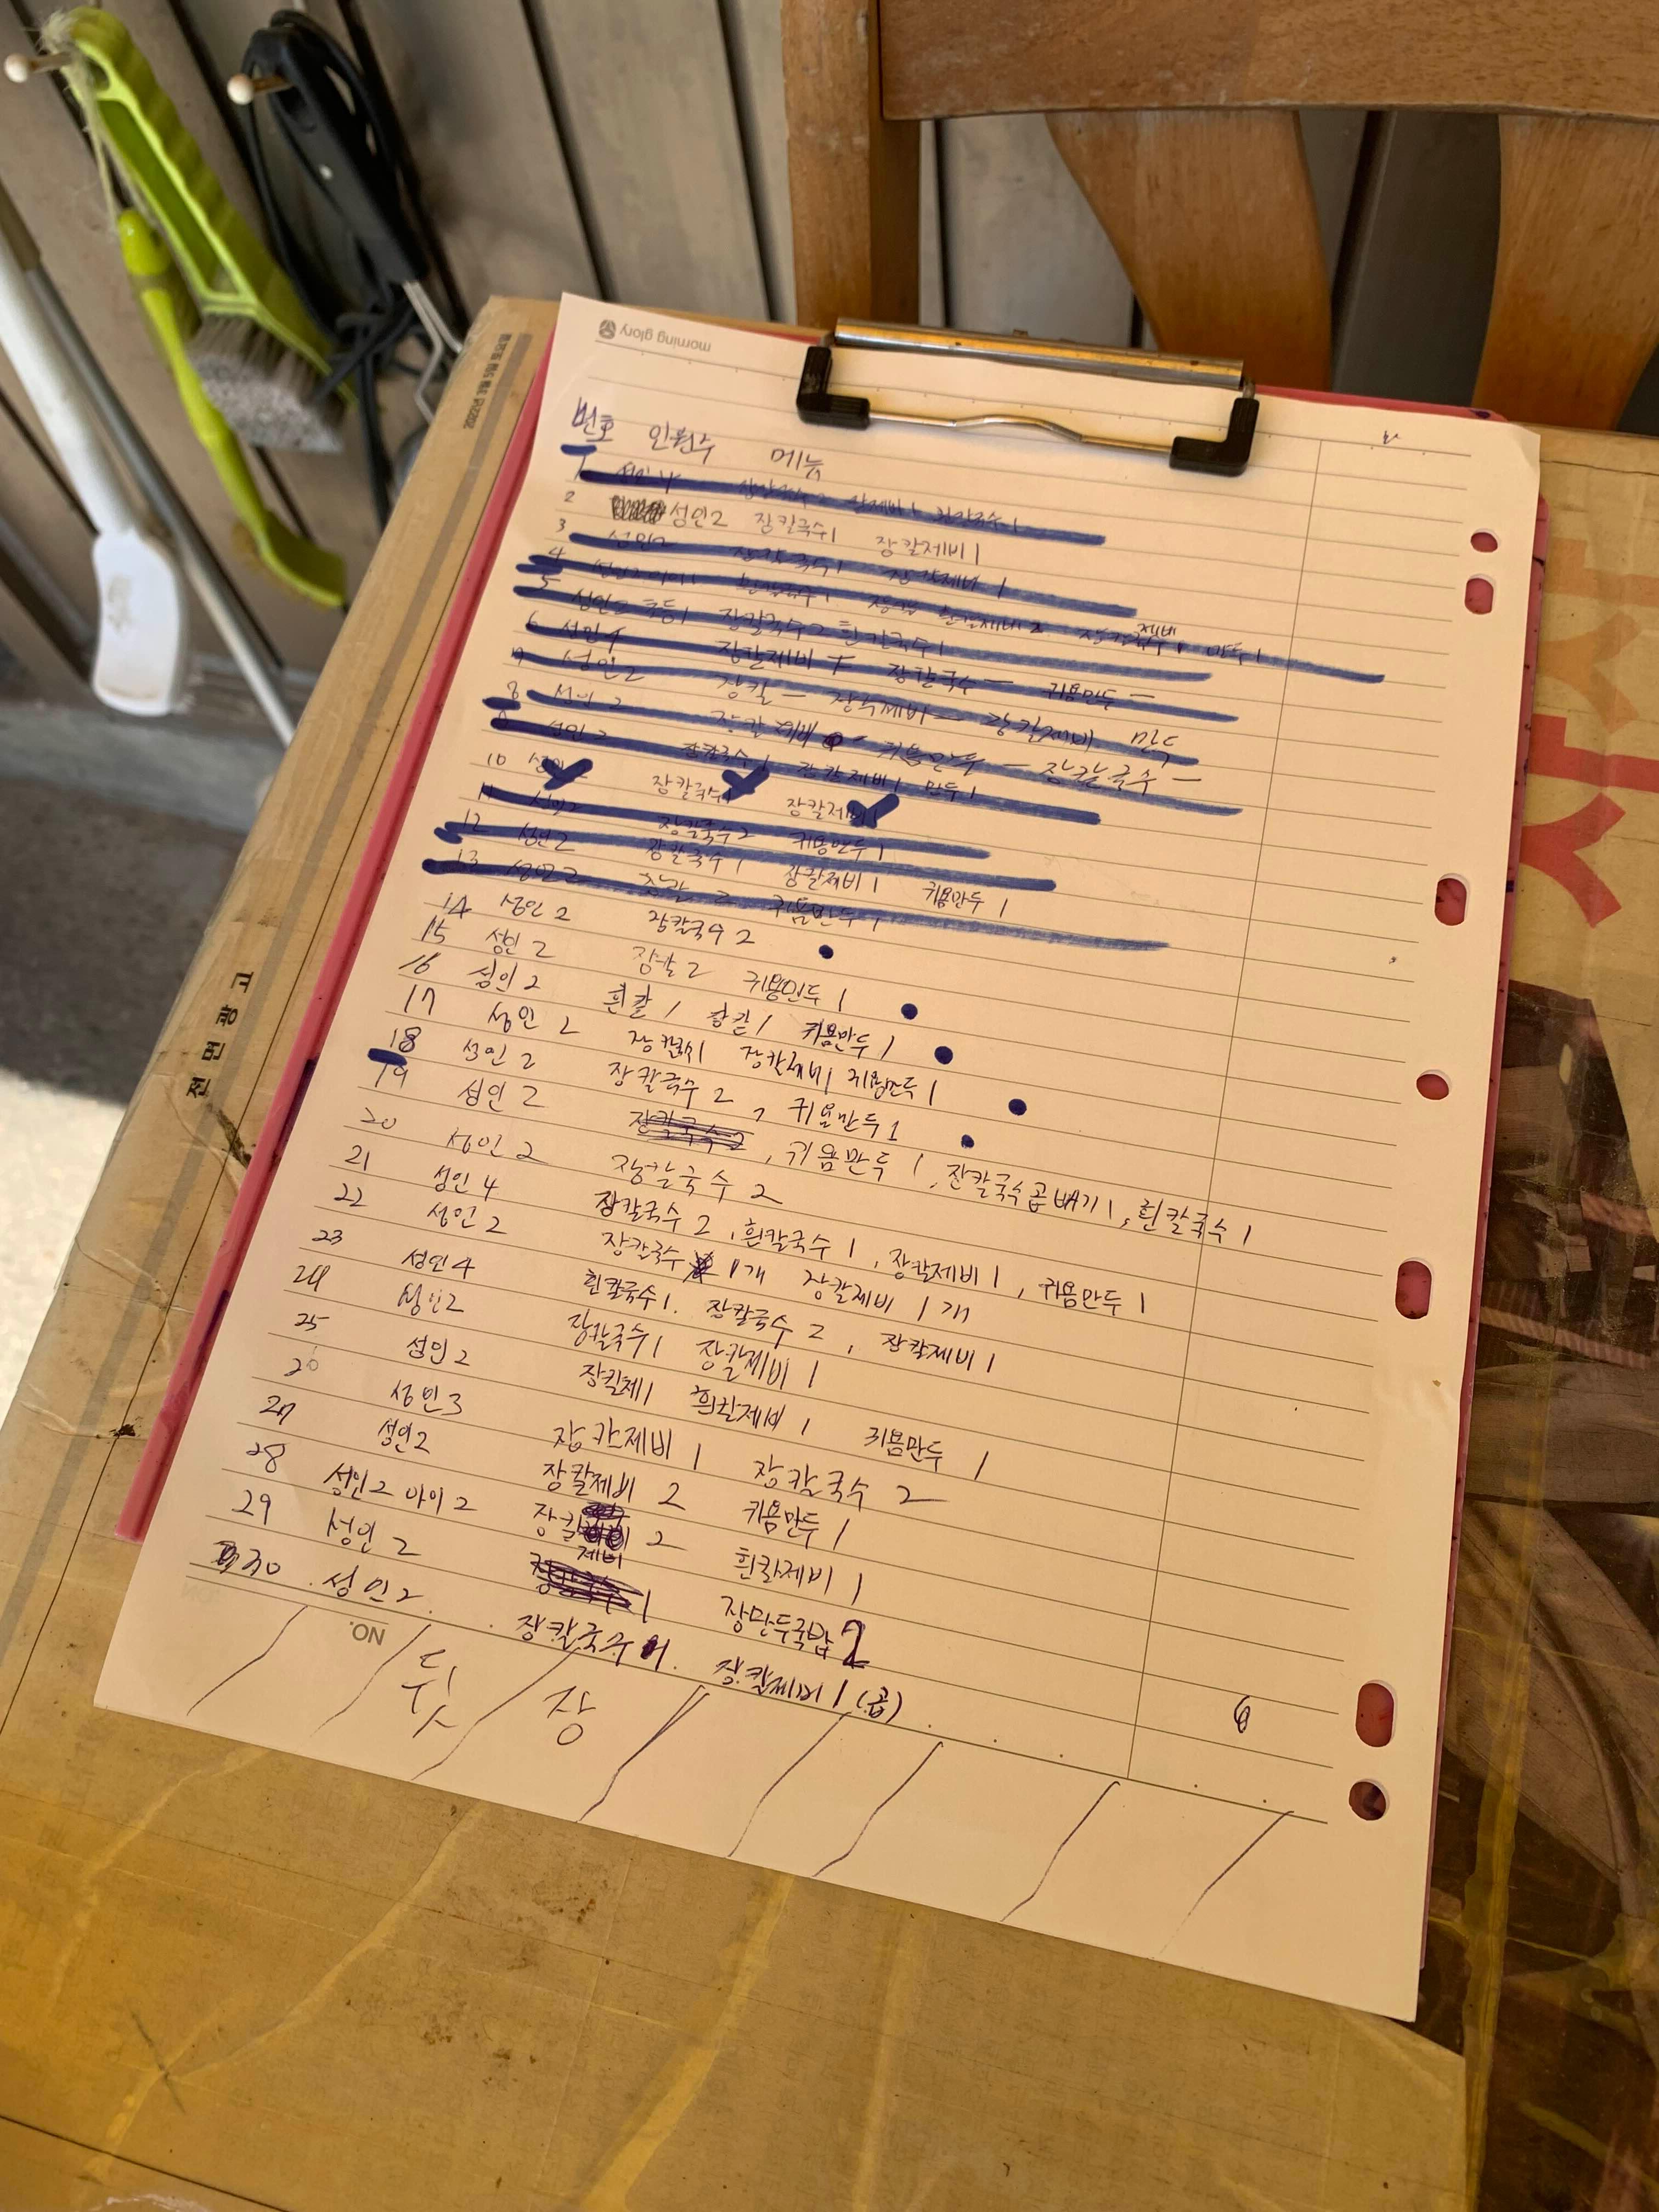 morning glory
번호 인원수 메뉴
2 성인2 장칼국수1 장칼제비1
3 성인2 장칼국수1 장칼제비1
4
5 성인2 초등1 장칼국수2 흰칼국수1
6 성인4 장칼제비 장칼국수 귀욤만두
성인2 장칼 장칼제비 만두
8 성인2 귀욤만두 장칼국수
성인2 장칼국수1 장칼제비1 만두1
10 장칼국수 장칼제비
11 성인2 장칼국수2 귀욤만두1
12 성인2 장칼국수1 장칼제비1 귀욤만두1
13 성인2 장칼2 귀욤만두1
14 성인2 장칼국수2
15 성인2 장칼2 귀욤만두1
16 성인2 흰칼1 장칼1 귀욤만두1
17 성인2 장칼국수1 장칼제비1 귀욤만두1
18 성인2 장칼국수2, 귀욤만두1
19 성인2 장칼국수2, 귀욤만두1, 장칼국수곱배기1, 흰칼국수1
20 성인2 장칼국수2
21 성인4 장칼국수2, 흰칼국수1, 장칼제비1, 귀욤만두1
22 성인2 장칼국수 1개 장칼제비 1개
23 성인4 흰칼국수1. 장칼국수2, 장칼제비1
24 성인2 장칼국수1 장칼제비1
25 성인2 장칼제1 흰칼제비1 귀욤만두1
26 성인3 장칼제비1 장칼국수2
27 성인2 장칼제비2 귀욤만두1
28 성인2 아이2 장칼제비2 흰칼제비1
29 성인2 장만두국밥2
30. 성인2. 장칼국수1. 장칼제비1(곱).
6
NO.
뒷장
전면광고